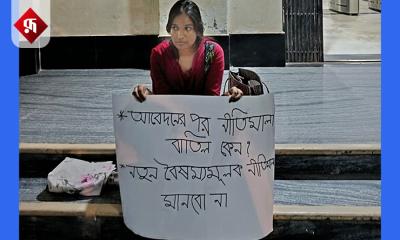 * আবেদনের পর নীতিমালা
বাতিল কেন?
* নতুন বৈষম্যমূলক নীতিমালা
মানবো না